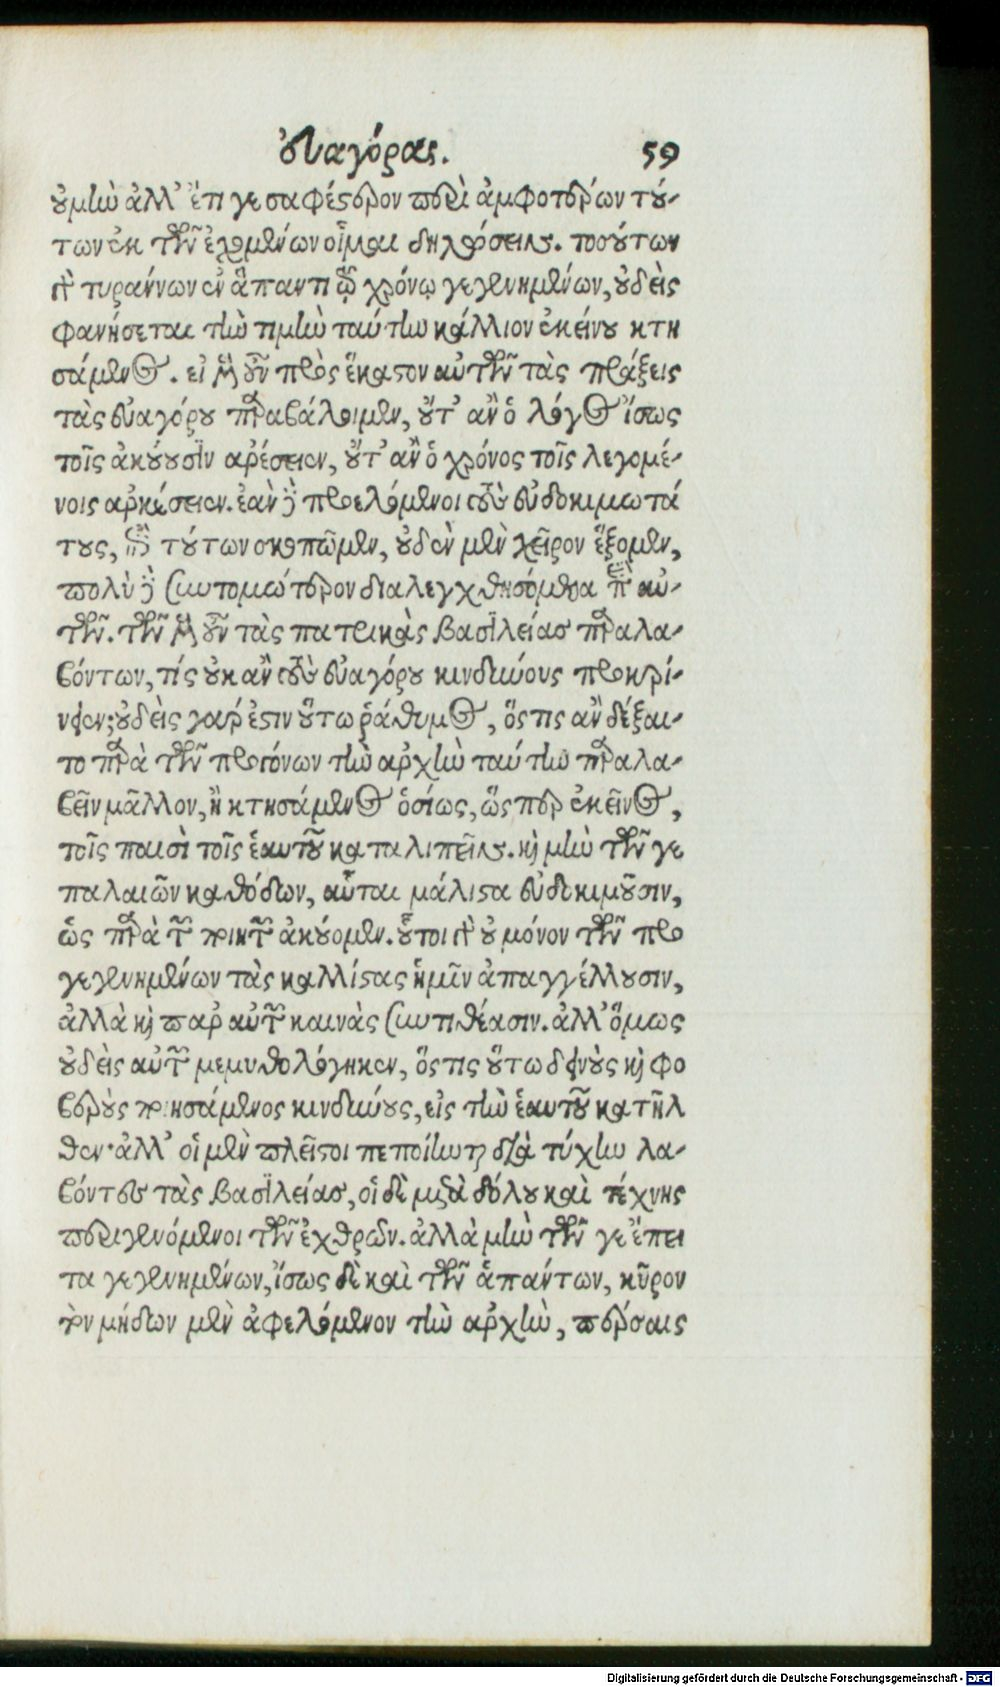 Εὐαγόρας. 59
ουμην ἀλλ' ἔτι γε σαφέστερον περὶ ἀμφοτέρων τού-
των ἐκ τῶν ἐχομένων οἶμαι δηλώσειν. τοσούτων
γὰρ τυράννων ἐν ἅπαντι τῷ χρόνῳ γεγενημένων, οὐδεὶς
φανήσεται τὴν τιμὴν ταύτην κάλλιον ἐκείνου κτη
σάμενος. εἰ μὲν οὖν πρὸς ἕκαστον αὐτῶν τὰς πράξεις
τὰς Εὐαγόρου παραβάλοιμεν, οὔτ' ἂν ὁ λόγος ἴσως
τοῖς ἀκούουσιν ἀρέσειεν, οὔτ' ἂν ὁ χρόνος τοῖς λεγομέ-
νοις ἀρκέσειεν. ἐὰν δὲ προελόμενοι τοὺς εὐδοκιμωτά
τους, ἐπὶ τούτων σκοπῶμεν, οὐδὲν μὲν χεῖρον ἕξομεν,
πολὺ δὲ συντομώτερον διαλεγχθησόμεθα περὶ αὐ-
τῶν. τῶν μὲν οὖν τὰς πατρικὰς βασιλείας παραλα-
βόντων, τίς οὐκ ἂν τοὺς εὐαγόρου κινδύνους προκρί-
νειεν; οὐδεὶς γάρ ἐστιν οὕτω ῥάθυμος, ὅστις ἂν δέξαι-
το παρὰ τῶν προγόνων τὴν ἀρχὴν ταύτην παραλα-
βεῖν μᾶλλον, ἢ κτησάμενος ὁσίως, ὥσπερ ἐκεῖνος,
τοῖς παισὶ τοῖς ἑαυτοῦ καταλιπεῖν. καὶ μὴν τῶν γε
παλαιῶν καθόδων, αὗται μάλιστα εὐδοκιμοῦσιν,
ὡς παρὰ τῶν ποιητῶν ἀκούομεν. οὗτοι γὰρ οὐ μόνον τῶν προ
γεγενημένων τὰς καλλίστας ἡμῖν ἀπαγγέλλουσιν,
ἀλλὰ καὶ παρ' αὐτῶν καινὰς συντιθέασιν. ἀλλ' ὅμως
οὐδεὶς αὐτῶν μεμυθολόγηκεν, ὅστις οὕτω δεινοὺς καὶ φο
βεροὺς ποιησάμενος κινδύνους, εἰς τὴν ἑαυτοῦ κατῆλ
θεν· ἀλλ' οἱ μὲν πλεῖστοι πεποίηνται διὰ τύχην λα-
βόντες τὰς βασιλείας, οἱ δὲ μετὰ δόλου καὶ τέχνης
περιγενόμενοι τῶν ἐχθρῶν. ἀλλὰ μὴν τῶν γε ἔπει
τα γεγενημένων, ἴσως δὲ καὶ τῶν ἁπάντων, κῦρον
τὸν μήδων μὲν ἀφελόμενον τὴν ἀρχὴν, πέρσαις
Digitalisierung gefördert durch die Deutsche Forschungsgemeinschaft - DFG